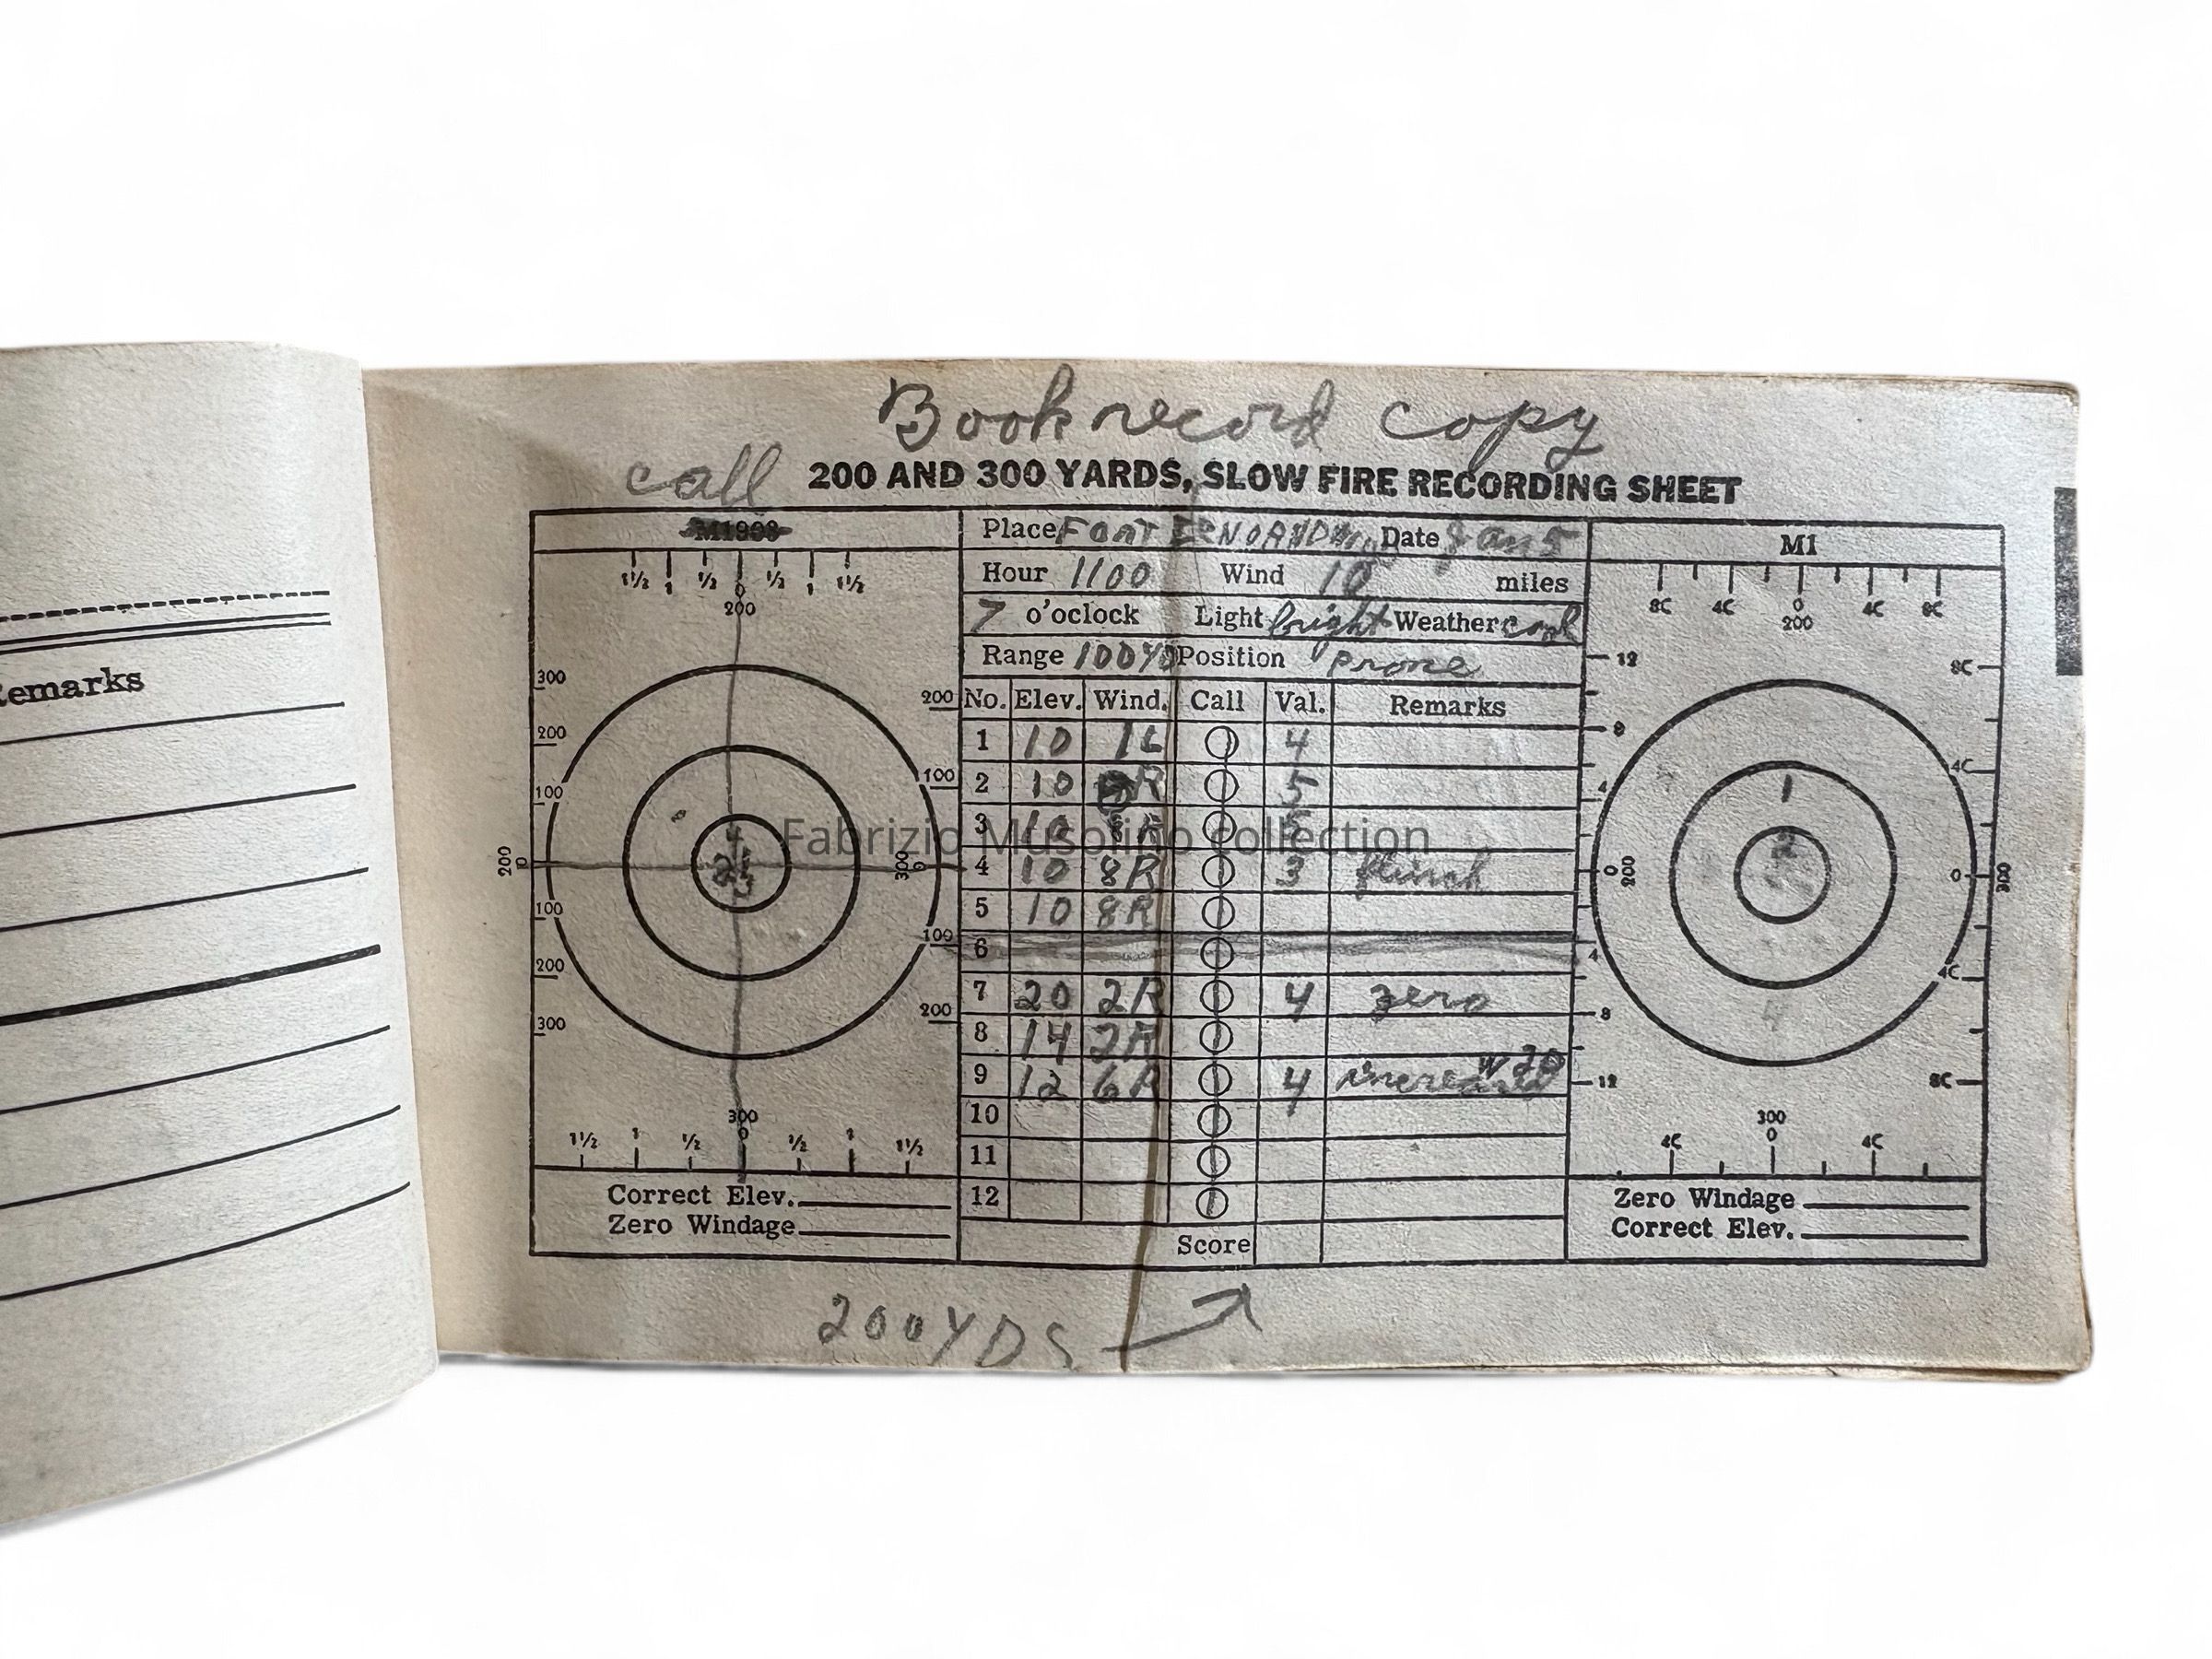 Remarks
Book record copy
call 200 AND 300 YARDS, SLOW FIRE RECORDING SHEET
M1903
1½ 1 ½ 0 ½ 1 1½
200
300
200
100
200 0
100
200
300
200
100
300 0
100
200
300
0
1½ 1 ½ ½ 1 1½
Correct Elev.
Zero Windage
Place Date Jan 5
Hour 1100 Wind 10 miles
7 o'oclock Light bright Weather cool
Range 100YD Position prone
No. Elev. Wind. Call Val. Remarks
1 10 1L 4
2 10 R 5
3 10 8R 5
4 10 8R 3 flinch
5 10 8R
6
7 20 2R 4 zero
8 14 2R
9 12 6R 4
10
11
12
Score
M1
8C 4C 0 4C 8C
200
12
8
4
0 200
4
8
12
8C
4C
0 300
4C
8C
1
2
4
300
0
4C 4C
Zero Windage
Correct Elev.
200YDS
Fabrizio Musolino collection